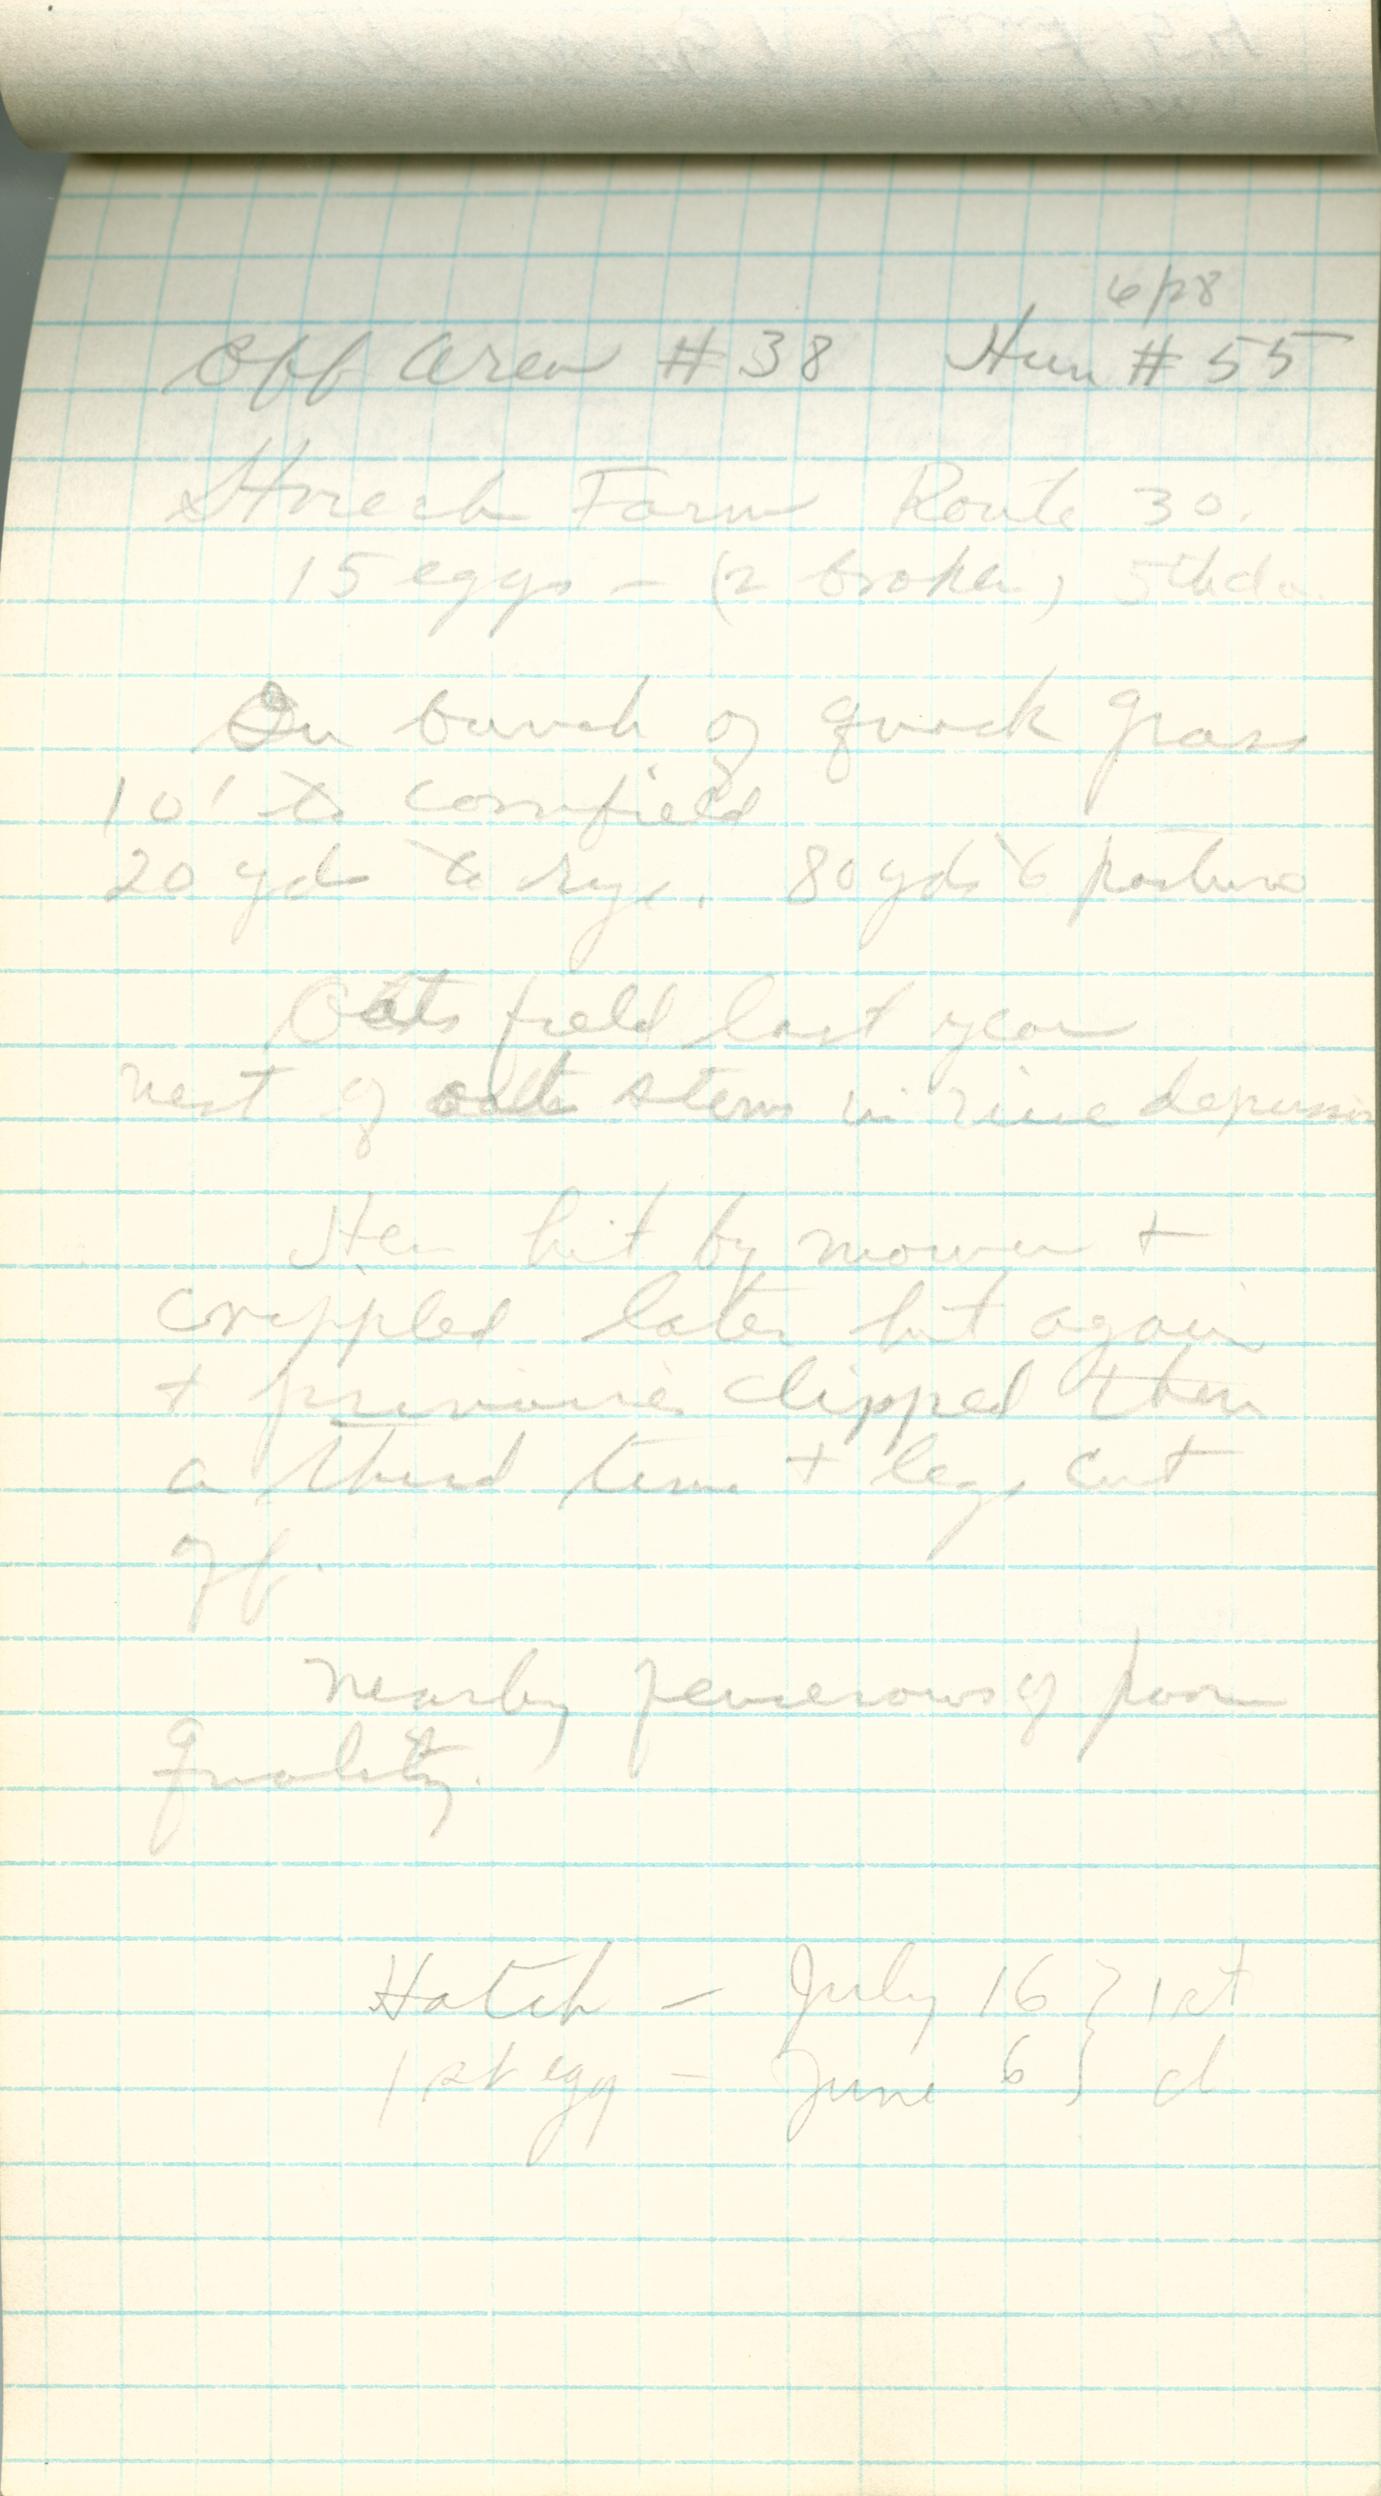 6/28
Off Area # 38 Hun # 55
Farm Route 30.
15 eggs - (2 broken) 5th da.
In bunch of quack grass
10' to cornfield
20 yds to rye. 80 yds to pasture
Oats field last year
nest of oats stems in depression
Hen hit by mower +
crippled later hit again
+ primaries clipped then
a third time + legs cut
off.
Nearby fencerows of poor
quality.
Hatch - July 16 } 1st
1st egg - June 6 } cl